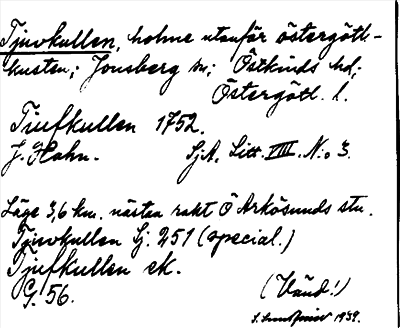 Tjuvkullen, holme utanför östergötl-
kusten; Jonsberg sn; Östkinds hd;
Östergötl. l.
Tiufkullen 1752.
J. Hahn. SjA. Litt. VIII. N:o 3.
Läge 3,6 km. nästan rakt Ö Arkösunds stn.
Tjuvkullen Sj. 251 (special.)
Tjufkullen ek.
G. 56.
(Vänd!)
1939.